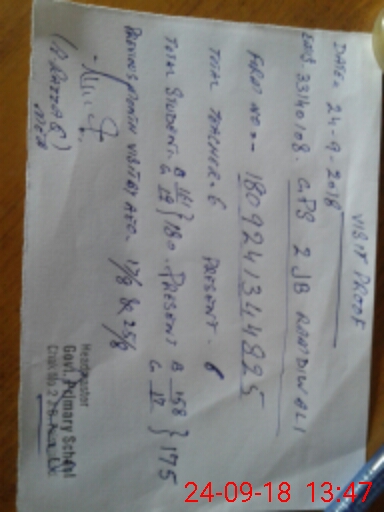 VISIT PROOF
DATE: 24-9-2018
EMIS 33140108. GPS 2 JB RAMDIWALI
FORM NO :- 1809241344825
TOTAL TEACHER. 6 PRESENT. 6
TOTAL STUDENT B 161 G 19 } 180. PRESENT B 158 G 17 } 175
PREVIOUS MONTH VISIT BY AEO. 17/8 & 25/8
(A RAZZAQ)
Headmaster
Govt. Primary School
Chak No 2
24-09-18 13:47